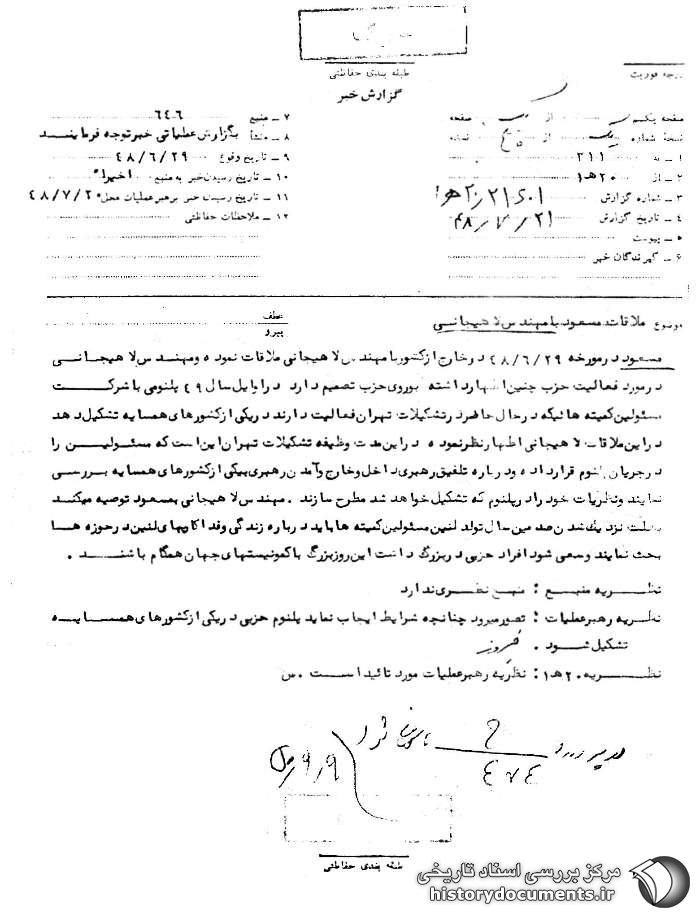 طبقه بندی حفاظتی
گزارش خبر
درجه فوریت
صفحه یکم از صفحه
نسخهٔ شماره یک از پنج نسخه
۱ – به ۳۱۱
۲ – از ۲۰ ه‍ ۱
۳ – شماره گزارش
۴ – تاریخ گزارش ۴۸/۷/۲۱
۵ – پیوست
۶ – گیرندگان خبر
۷ – منبع ۶۴۰۶
۸ – منشأ بگزارش عملیاتی خبر توجه فرمایند
۹ – تاریخ وقوع ۴۸/۶/۲۹
۱۰ – تاریخ رسیدن خبر به منبع اخیرا"
۱۱ – تاریخ رسیدن خبر برهبر عملیات محل ۴۸/۷/۲۰
۱۲ – ملاحظات حفاظتی
موضوع ملاقات مسعود با مهندس لاهیجانی
عطف
پیرو
مسعود در مورخه ۴۸/۶/۲۹ در خارج از کشور با مهندس لاهیجانی ملاقات نموده و مهندس لاهیجانی
در مورد فعالیت حزب چنین اظهار داشته بوروی حزب تصمیم دارد در اوایل سال ۴۹ پلنومی با شرکت
مسئولین کمیته هائیکه در حال حاضر در تشکیلات تهران فعالیت دارند در یکی از کشورهای همسایه تشکیل دهد
در این ملاقات لاهیجانی اظهار نظر نموده در این مدت وظیفه تشکیلات تهران این است که مسئولین را
در جریان پلنوم قرار داده و درباره تلفیق رهبری داخل و خارج و آمدن رهبری بیکی از کشورهای همسایه بررسی
نمایند و نظریات خود را در پلنوم که تشکیل خواهد شد مطرح سازند . مهندس لاهیجانی بمسعود توصیه میکند
بعلت نزدیک شدن صدمین سال تولد لنین مسئولین کمیته ها باید درباره زندگی و فداکاریهای لنین در حوزه ها
بحث نمایند و سعی شود افراد حزبی در بزرگ داشت این روز بزرگ با کمونیستهای جهان همگام باشند .
نظریه منبع : منبع نظری ندارد
نظریه رهبر عملیات : تصور میرود چنانچه شرایط ایجاب نماید پلنوم حزبی در یکی از کشورهای همسایه
تشکیل شود . فیروز
نظریه ۲۰ ه‍ ۱ : نظریه رهبر عملیات مورد تائید است . س
۴۷۴
۹/۹
طبقه بندی حفاظتی
مرکز بررسی اسناد تاریخی
historydocuments.ir